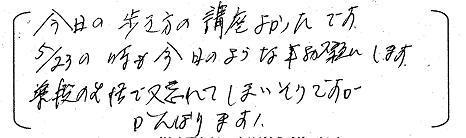 今日の歩き方の講座よかったです
5/23の時も今日のような事お願いします
普段の生活で又忘れてしまいそうですが
がんばります!